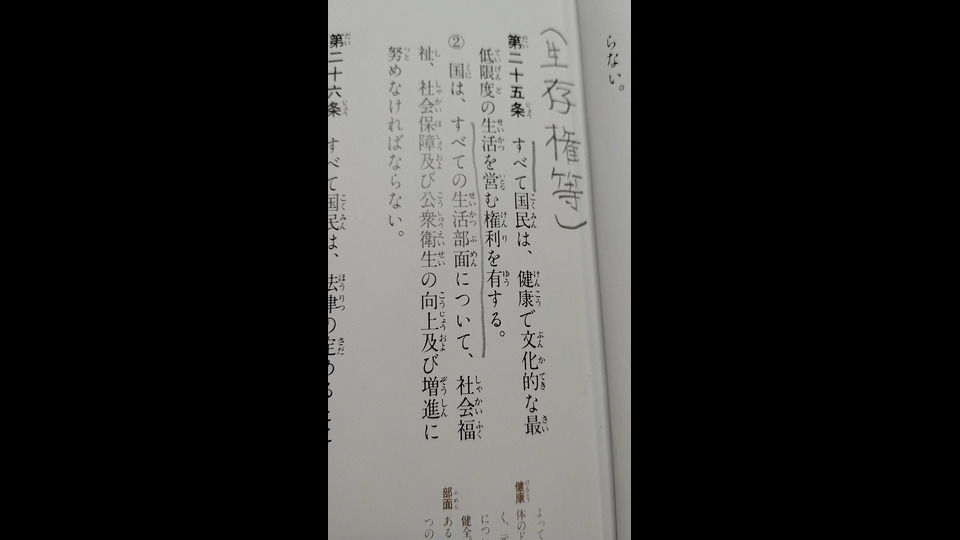 らない。
（生存権等）
第二十五条　すべて国民は、健康で文化的な最
低限度の生活を営む権利を有する。
② 国は、すべての生活部面について、社会福
祉、社会保障及び公衆衛生の向上及び増進に
努めなければならない。
第二十六条　すべて国民は、法律の定める
健康　体の
部面